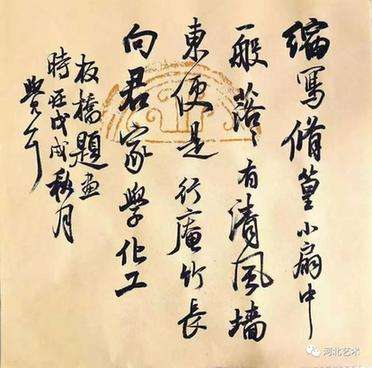 缩寫脩篁小扇中
一般落々有清風墙
東便是行庵竹長
向君家學化工
板橋題画
時在戊戌秋月
河北艺术